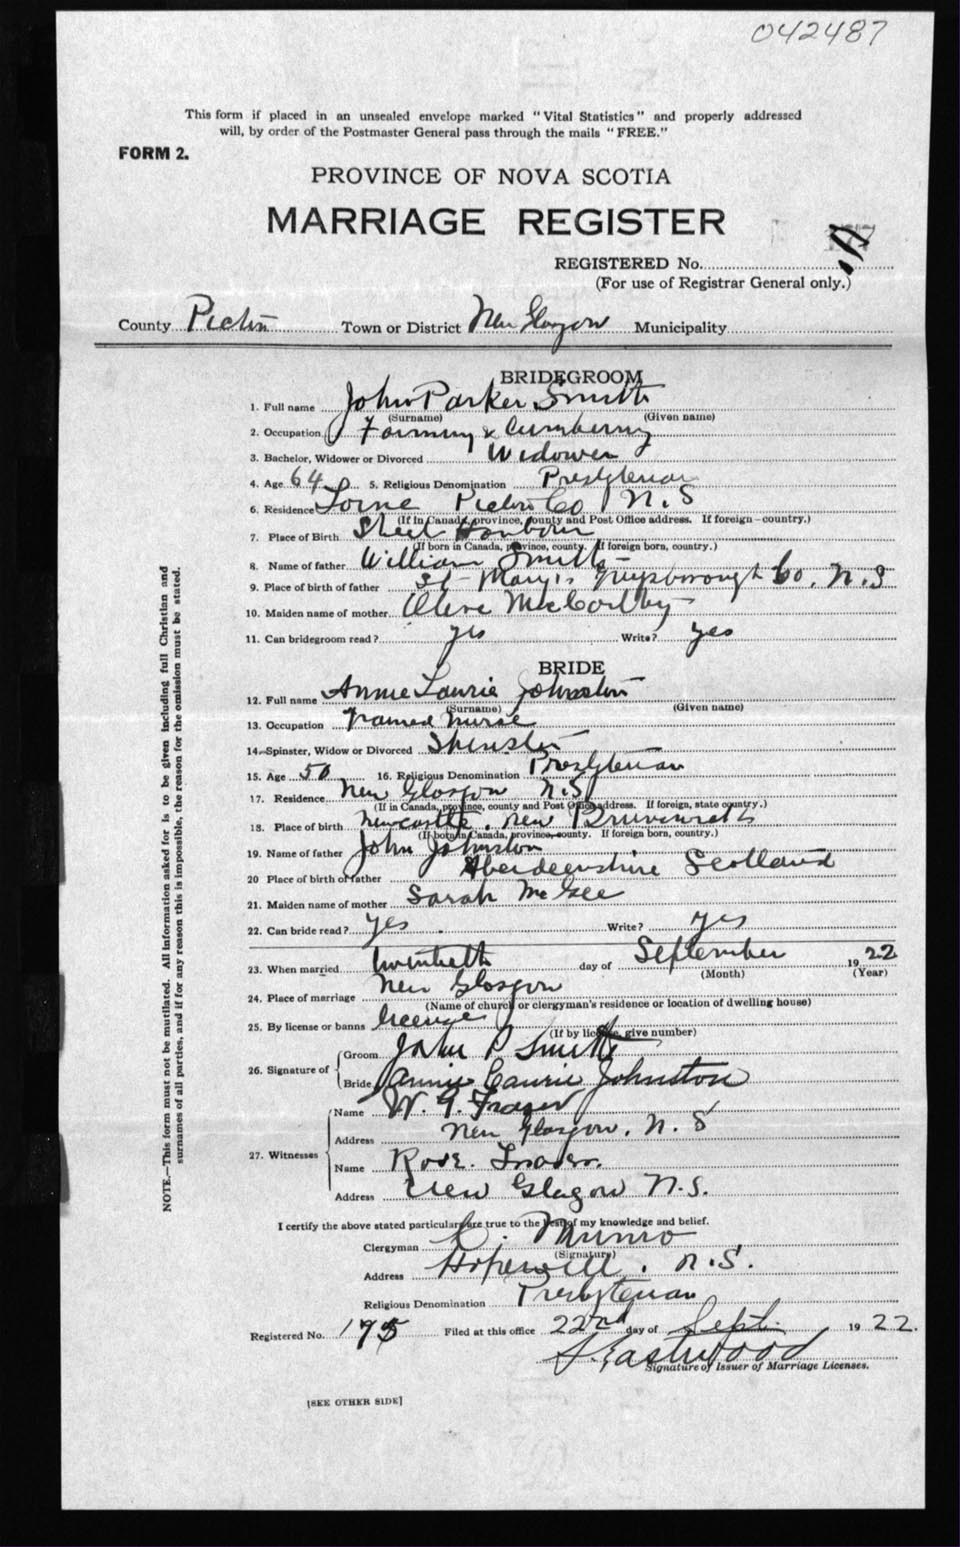 042487
This form if placed in an unsealed envelope marked "Vital Statistics" and properly addressed
will, by order of the Postmaster General pass through the mails "FREE."
FORM 2.
PROVINCE OF NOVA SCOTIA
MARRIAGE REGISTER
REGISTERED No.
(For use of Registrar General only.)
County Pictou Town or District New Glasgow Municipality
BRIDEGROOM
1. Full name John Parker Smith
(Surname) (Given name)
2. Occupation Farming &
3. Bachelor, Widower or Divorced Widower
4. Age 64 5. Religious Denomination Presbyterian
6. Residence Lorne Pictou Co N.S
(If in Canada, province, county and Post Office address. If foreign—country.)
7. Place of Birth Sheet Harbour
(If born in Canada, province, county. If foreign born, country.)
8. Name of father William Smith
9. Place of birth of father St Mary's Guysborough Co. N.S
10. Maiden name of mother Olive
11. Can bridegroom read? yes Write? yes
BRIDE
12. Full name Annie Laurie Johnston
(Surname) (Given name)
13. Occupation Trained Nurse
14. Spinster, Widow or Divorced Spinster
15. Age 50 16. Religious Denomination Presbyterian
17. Residence New Glasgow N.S
(If in Canada, province, county and Post Office address. If foreign, state country.)
18. Place of birth Newcastle, New Brunswick
(If born in Canada, province, county. If foreign born, country.)
19. Name of father John Johnston
20 Place of birth of father Aberdeenshire Scotland
21. Maiden name of mother Sarah McGee
22. Can bride read? yes Write? yes
23. When married twentieth day of September 1922
(Month) (Year)
24. Place of marriage New Glasgow
(Name of church or clergyman's residence or location of dwelling house)
25. By license or banns license
(If by license, give number)
26. Signature of Groom John P Smith
Bride Annie Laurie Johnston
27. Witnesses Name W. G. Fraser
Address New Glasgow, N.S
Name Rose
Address New Glasgow N.S.
I certify the above stated particulars are true to the best of my knowledge and belief.
Clergyman C. Munro
(Signature)
Address Hopewell, N.S.
Religious Denomination Presbyterian
Registered No. 195 Filed at this office 22nd day of Sept. 1922.
Eastwood
Signature of Issuer of Marriage Licenses.
[SEE OTHER SIDE]
NOTE.—This form must not be mutilated. All information asked for is to be given including full Christian and
surnames of all parties, and if for any reason this is impossible, the reason for the omission must be stated.